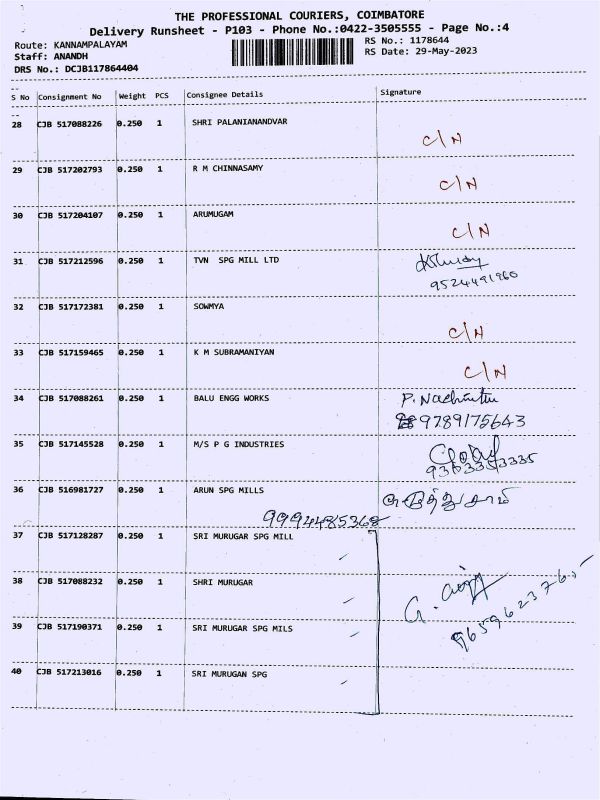 THE PROFESSIONAL COURIERS, COIMBATORE
Delivery Runsheet - P103 - Phone No.:0422-3505555 - Page No.:4
Route: KANNAMPALAYAM RS No.: 1178644
Staff: ANANDH RS Date: 29-May-2023
DRS No.: DCJB117864404
S No Consignment No Weight PCS Consignee Details Signature
28 CJB 517088226 0.250 1 SHRI PALANIANANDVAR
C/N
29 CJB 517202793 0.250 1 R M CHINNASAMY
C/N
30 CJB 517204107 0.250 1 ARUMUGAM
C/N
31 CJB 517212596 0.250 1 TVN SPG MILL LTD
9524491960
32 CJB 517172381 0.250 1 SOWMYA
C/N
33 CJB 517159465 0.250 1 K M SUBRAMANIYAN
C/N
34 CJB 517088261 0.250 1 BALU ENGG WORKS P.
9789175643
35 CJB 517145528 0.250 1 M/S P G INDUSTRIES
36 CJB 516981727 0.250 1 ARUN SPG MILLS
9994485368
37 CJB 517128287 0.250 1 SRI MURUGAR SPG MILL
38 CJB 517088232 0.250 1 SHRI MURUGAR
G.
965962376
39 CJB 517190371 0.250 1 SRI MURUGAR SPG MILS
40 CJB 517213016 0.250 1 SRI MURUGAN SPG